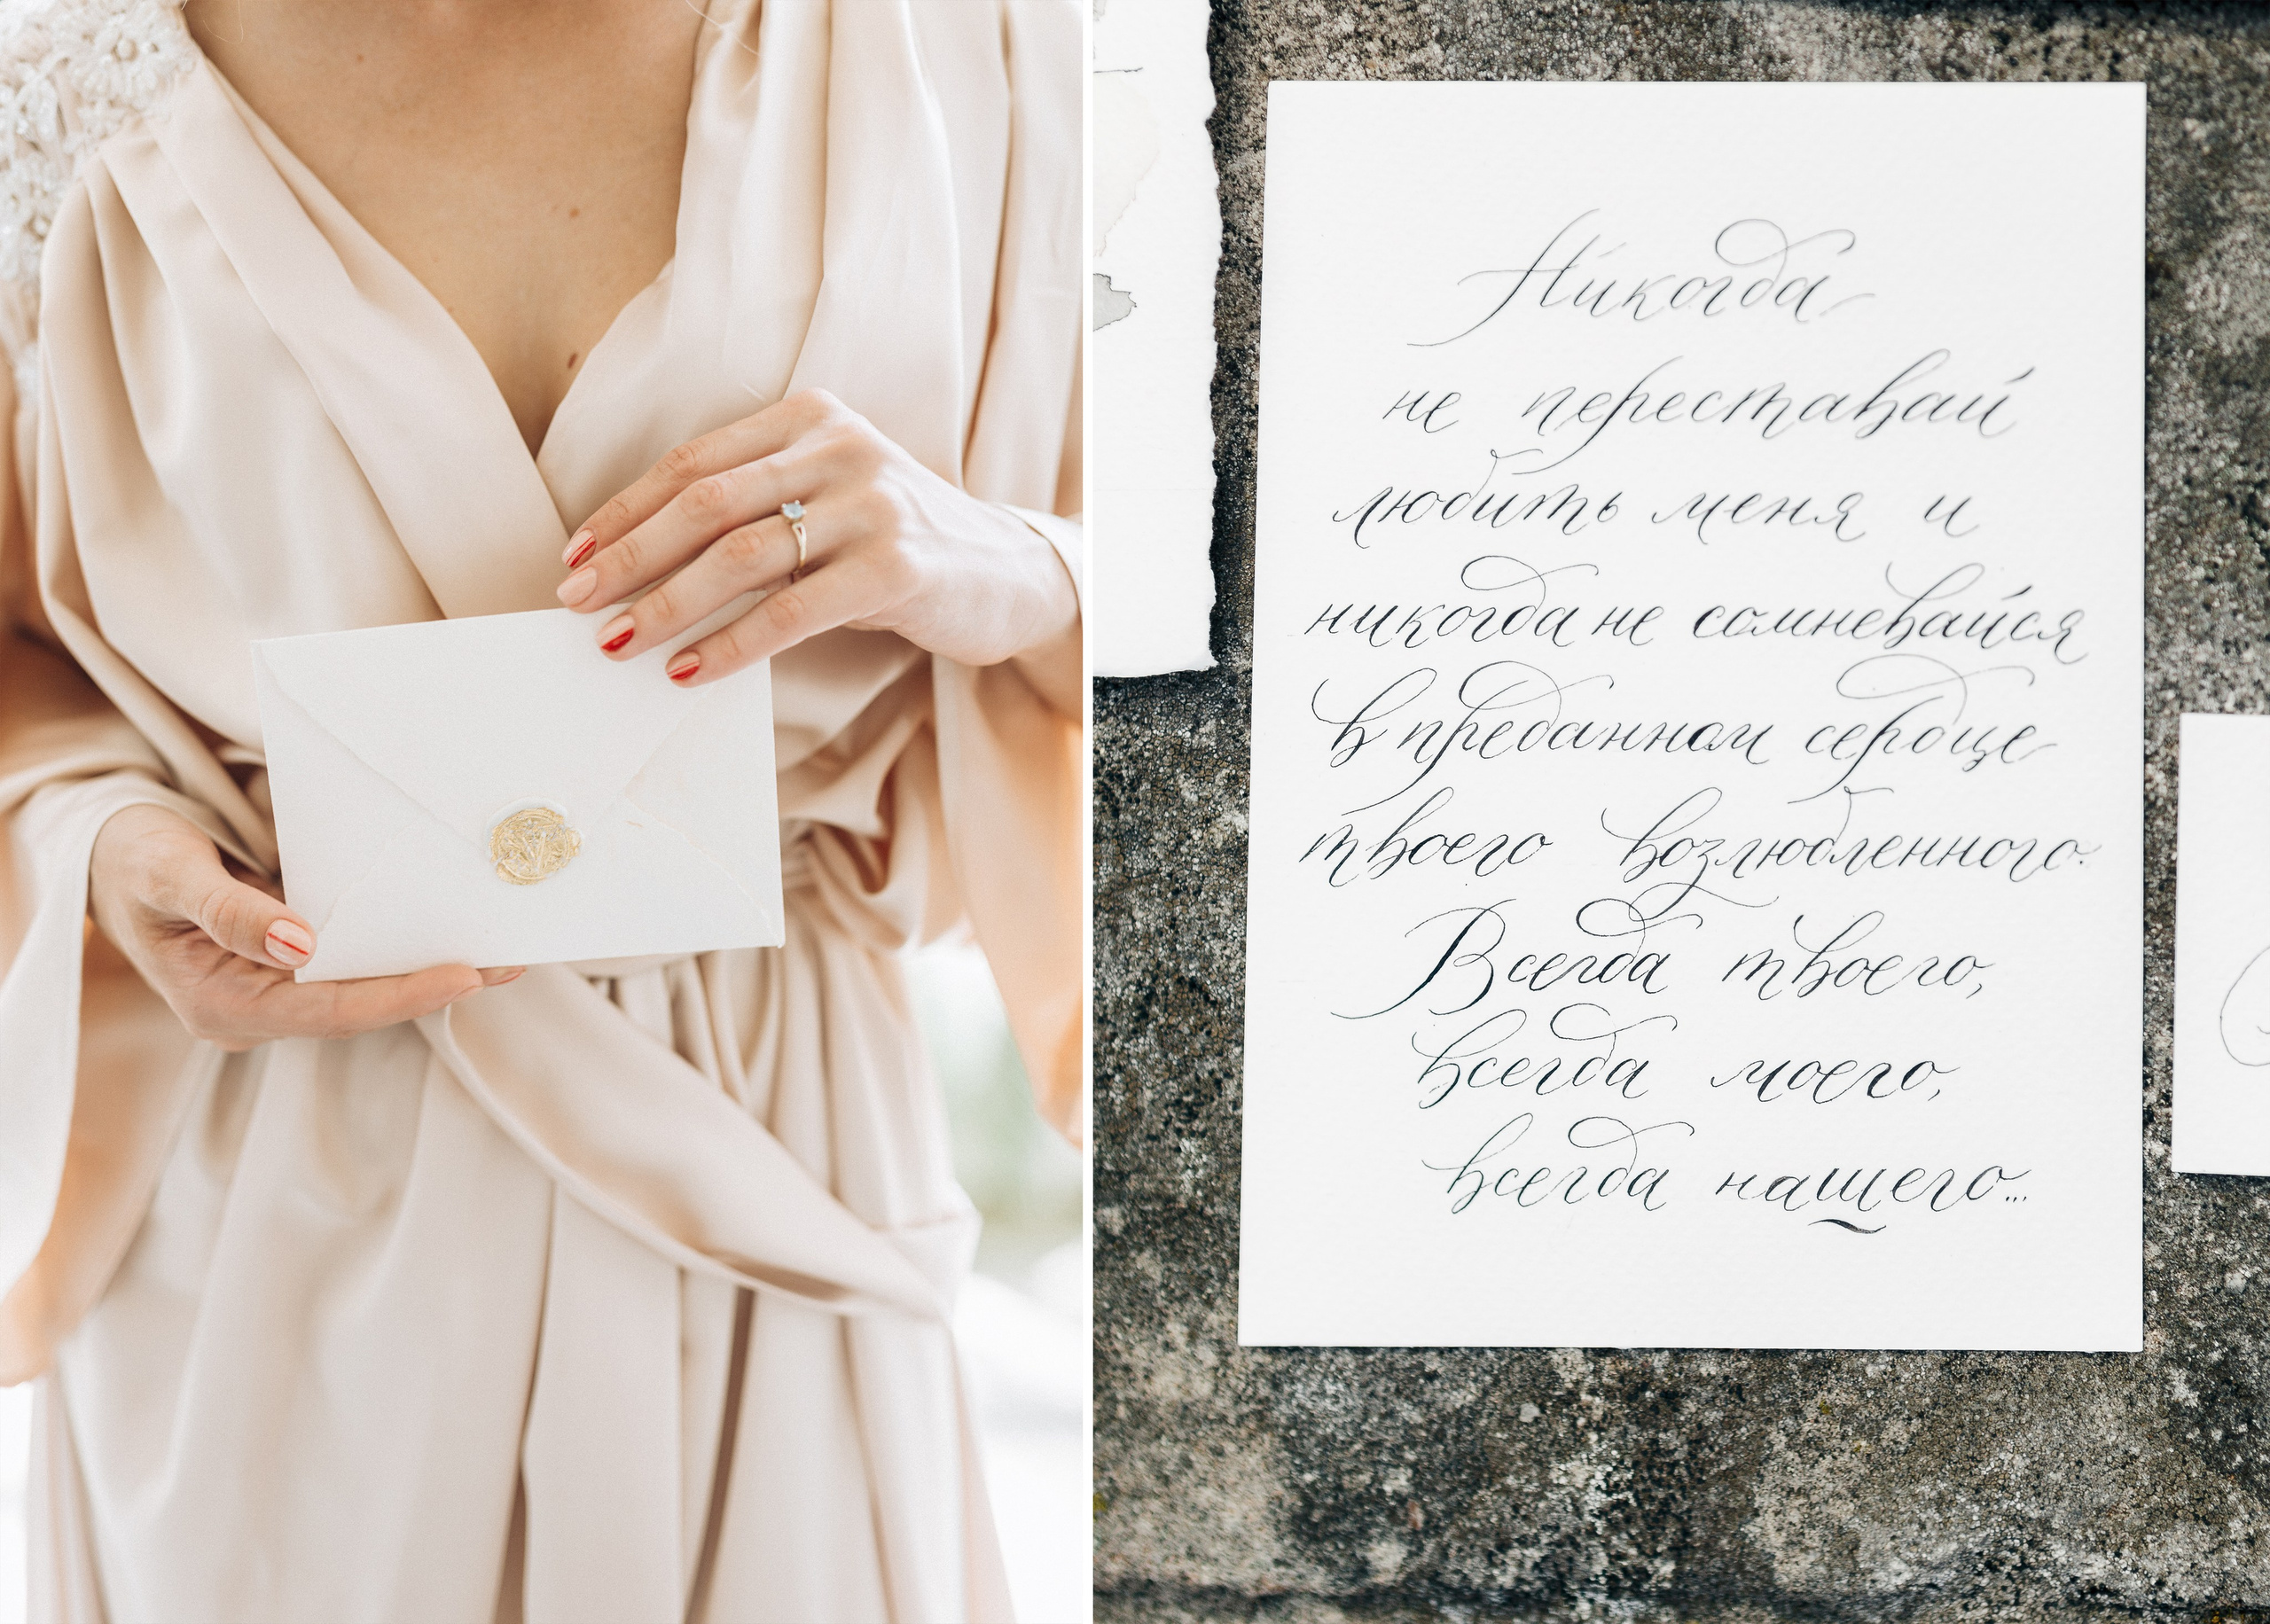 Никогда
не переставай
любить меня и
никогда не сомневайся
в преданном сердце
твоего возлюбленного.
Всегда твоего,
всегда моего,
всегда нашего...